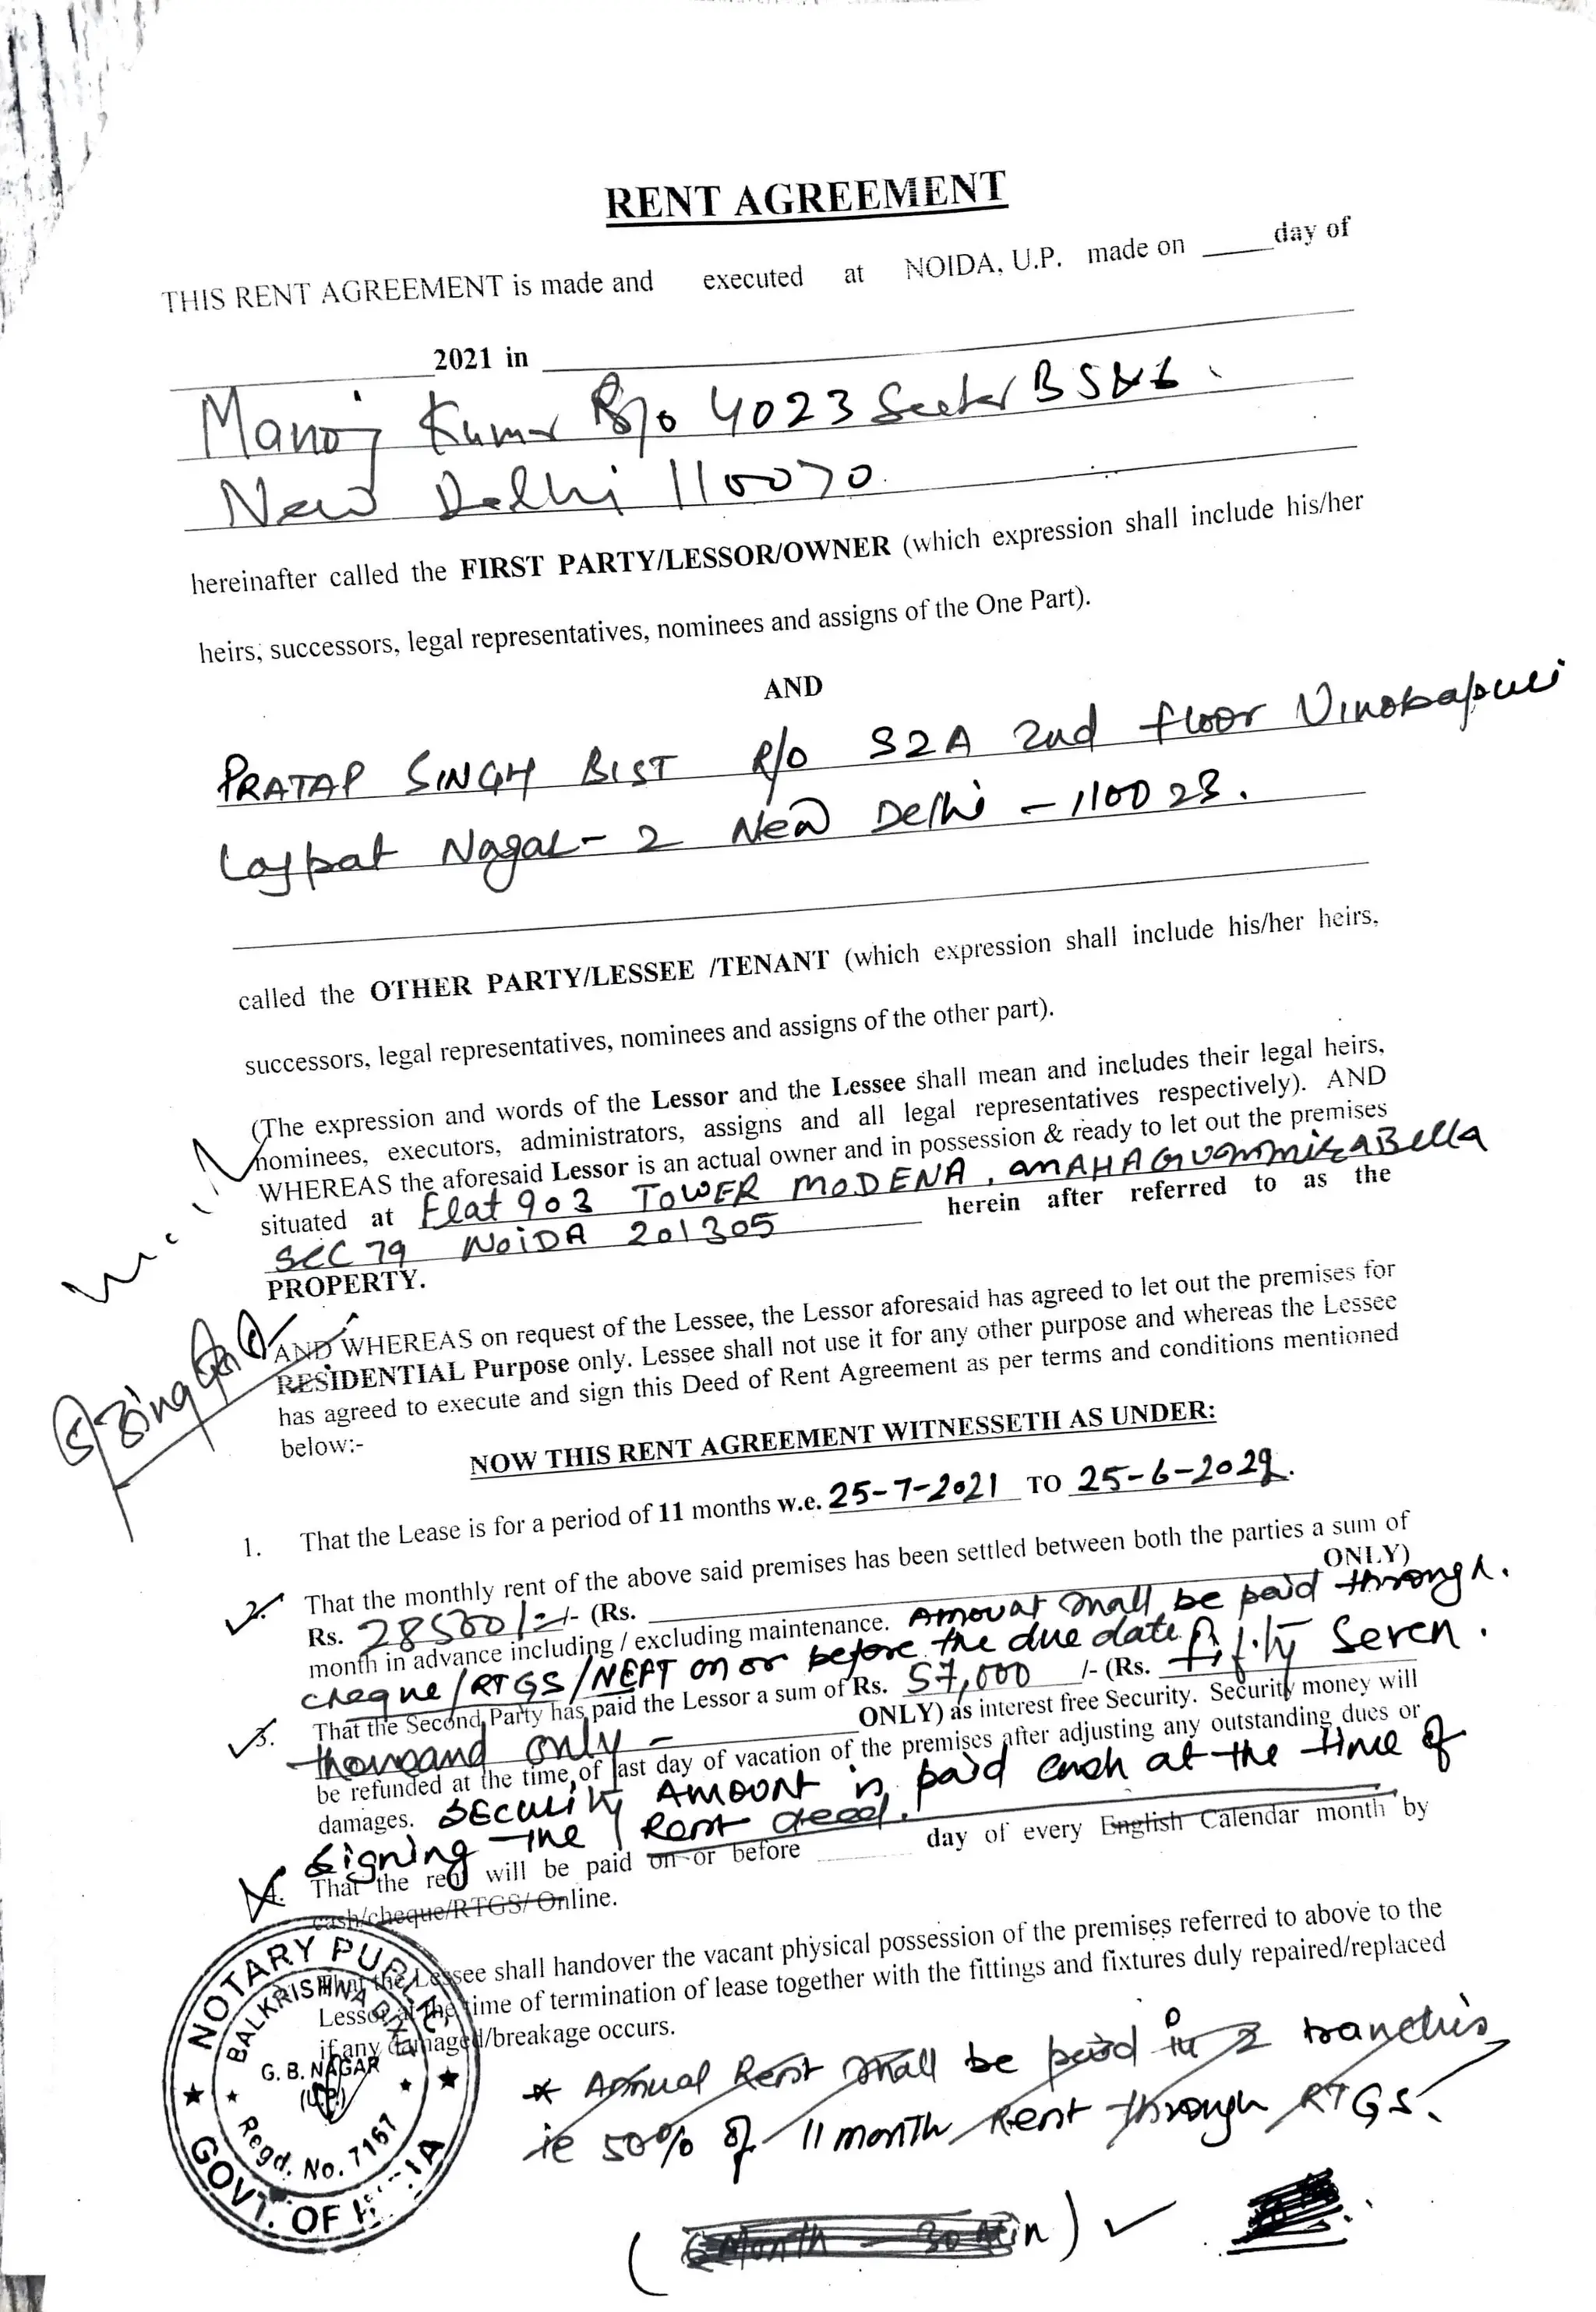 RENT AGREEMENT
THIS RENT AGREEMENT is made and executed at NOIDA, U.P. made on _____day of
2021 in
Manoj Kumar R/o 4023 Sector B 5&6
New Delhi 110070
hereinafter called the FIRST PARTY/LESSOR/OWNER (which expression shall include his/her
heirs, successors, legal representatives, nominees and assigns of the One Part).
AND
PRATAP SINGH BIST R/o S2A 2nd floor Vinobapuri
Lajpat Nagar-2 New Delhi - 110023.
called the OTHER PARTY/LESSEE /TENANT (which expression shall include his/her heirs,
successors, legal representatives, nominees and assigns of the other part).
(The expression and words of the Lessor and the Lessee shall mean and includes their legal heirs,
nominees, executors, administrators, assigns and all legal representatives respectively). AND
WHEREAS the aforesaid Lessor is an actual owner and in possession & ready to let out the premises
situated at Flat 903 TOWER MODENA, MAHAGUN MIRABELLA
SEC 79 NOIDA 201305 herein after referred to as the
PROPERTY.
AND WHEREAS on request of the Lessee, the Lessor aforesaid has agreed to let out the premises for
RESIDENTIAL Purpose only. Lessee shall not use it for any other purpose and whereas the Lessee
has agreed to execute and sign this Deed of Rent Agreement as per terms and conditions mentioned
below:-
NOW THIS RENT AGREEMENT WITNESSETH AS UNDER:
1. That the Lease is for a period of 11 months w.e. 25-7-2021 TO 25-6-2022.
2. That the monthly rent of the above said premises has been settled between both the parties a sum of
Rs. 28500/=/- (Rs. ONLY)
month in advance including / excluding maintenance. Amount shall be paid through
cheque/RTGS/NEFT on or before the due date
3. That the Second Party has paid the Lessor a sum of Rs. 57,000 /- (Rs. fifty Seven
thousand only - ONLY) as interest free Security. Security money will
be refunded at the time of last day of vacation of the premises after adjusting any outstanding dues or
damages. Security Amount is paid cash at the time of
signing the Rent deed.
4. That the rent will be paid on or before day of every English Calendar month by
cash/cheque/RTGS/ Online.
That the Lessee shall handover the vacant physical possession of the premises referred to above to the
Lessor at the time of termination of lease together with the fittings and fixtures duly repaired/replaced
if any damaged/breakage occurs.
* Annual Rent shall be paid in 2 tranches
ie 50% of 11 month Rent through RTGS.
NOTARY PUBLIC
BALKRISHNA DIXIT
G. B. NAGAR
(U.P.)
Regd. No. 7167
GOVT. OF INDIA